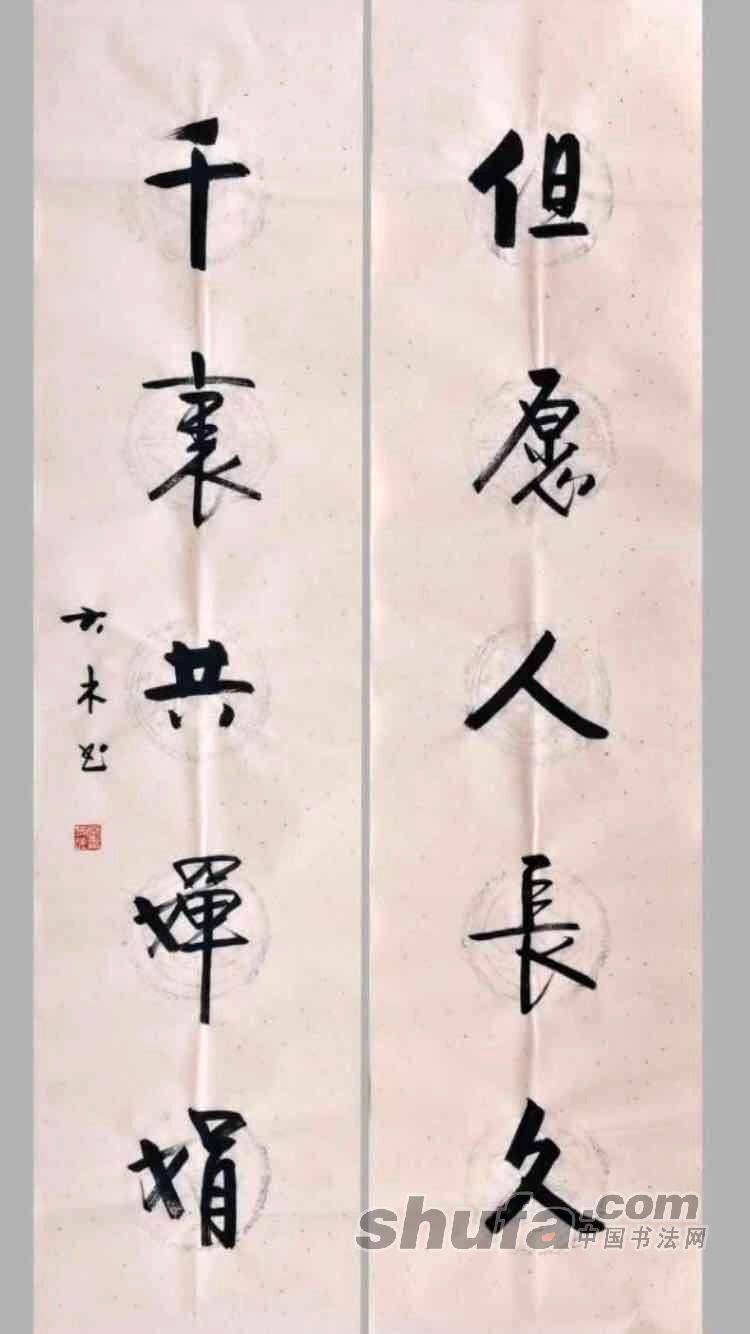 但愿人長久
千裏共嬋娟
六木书
shufa.com
中国书法网